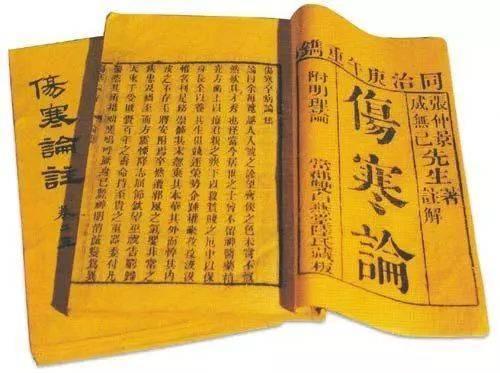 同治庚午年重鐫
張仲景先生著
成無已先生註解
傷寒論
附明理論 常郡雙白燕堂陸氏藏板
傷寒卒病論集
論曰余每覽越人入虢之診望齊侯之色未嘗不慨
然歎其才秀也怪當今居世之士曾不留神醫藥精
究方術上以療君親之疾下以救貧賤之厄中以保
身長全以養其生但競榮勢企踵權豪孜孜汲汲
惟名利是務崇飾其末忽棄其本華其外而悴其內
皮之不存毛將安附焉卒然遭邪風之氣嬰非常之
疾患及禍至而方震慄降志屈節欽望巫祝告窮歸
天束手受敗賫百年之壽命持至貴之重器委付凡
醫恣其所措咄嗟嗚呼厥身已斃神明消滅變為異
傷寒論註